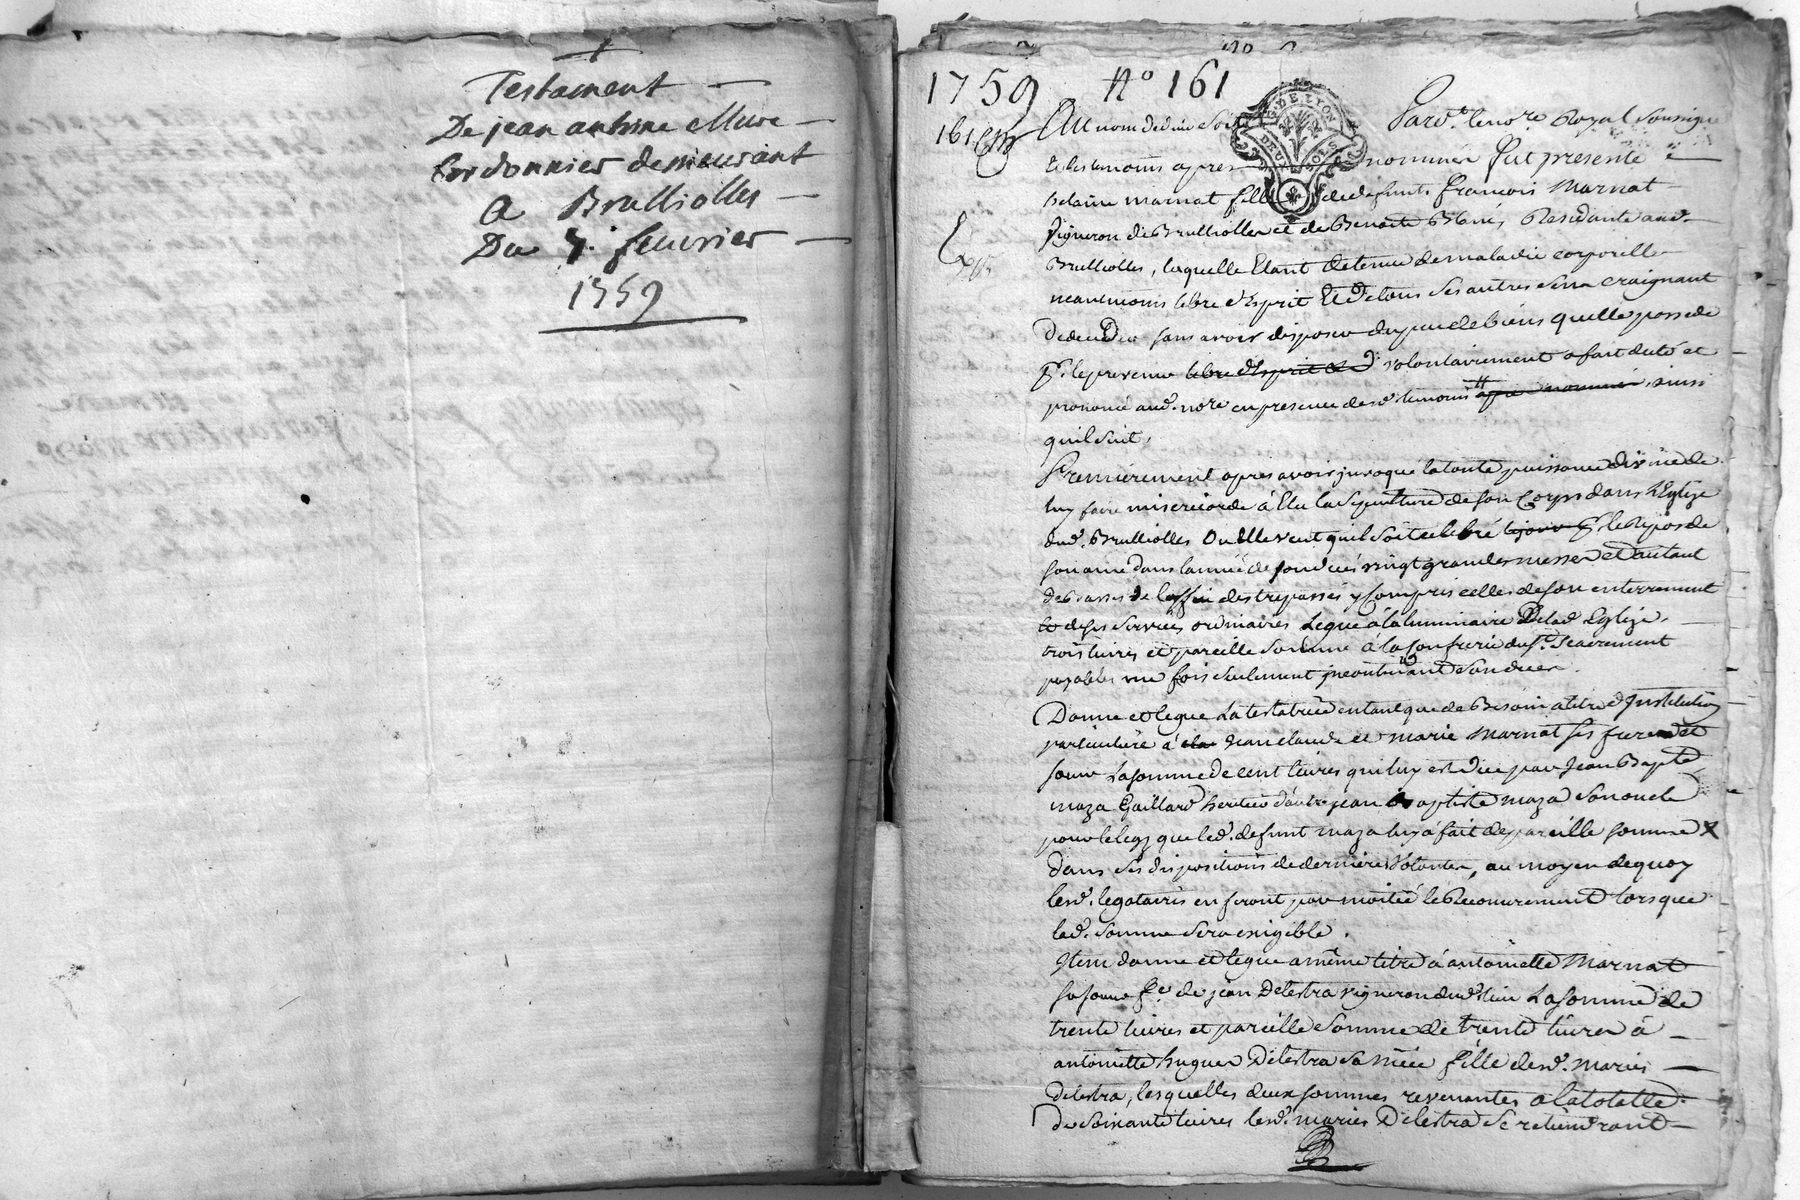 Testament
De jean antoine Mure
Cordonnier demeurant
A Brulliolles
Du 7. feuvrier
1759
1759 N° 161
161
Au nom de dieu Soit Pard.t le no.re Royal Soussigné
et les temoins apres nommés fut presente
helaine marnat fille de defunts francois Marnat
Vigneron de Brulliolles et de Benoite Residante aud.
Brulliolles, laquelle Etant detenue de maladie corporelle
neanmoins libre d'Esprit Et de tous ses autres sens craignant
de deceder sans avoir disposer du peu de biens quelle possede
p.r le presenu libre d'Esprit et volontairement a fait dicté et
prononcé aud. no.re en presence desd. temoins apres nommés ainsi
quil suit,
Premierement apres avoir jnvoqué la toute puissance divine de
luy faire misericorde à Elu la Sepulture de son Corps dans l'Eglize
dud. Brulliolles Ou Elle veut quil soit celebré le jour p.r le Repos de
son ame dans l'année de son decés vingt grandes messes et autant
de basses de l'office des trepassés y Compris celles de son enterrement
et de ses services ordinaires Legue à la luminaire de lad. Eglize
trois livres et pareille somme à la Confrerie du S.t Sacrement
payables une fois seulement jncontinant son deces.
Donne et legue La testatrice entant que de Besoin a titre d'Institution
particuliere à Jean claude et marie Marnat ses frere et
soeur La somme de cent livres qui luy est due par Jean Bap.te
maza Gaillard heritier d'autre jean Baptiste maza son oncle
pour le legs que led. defunt maza luy à fait de pareille somme X
dans ses dispositions de derniere Volontée, au moyen de quoy
lesd. legataires en feront par moitié le Recouvrement lorsque
lad. somme sera exigible.
Item donne et legue a même titre à antoinette Marnat
sa soeur f.e de jean Delestra vigneron dud. lieu La somme de
trente livres et pareille somme de trente livres à
antoinette hugues Delestra sa niéce fille desd. mariés
delestra, lesquelles deux sommes revenantes a la totalle
de soixante livres lesd. mariés Delestra se retiendront